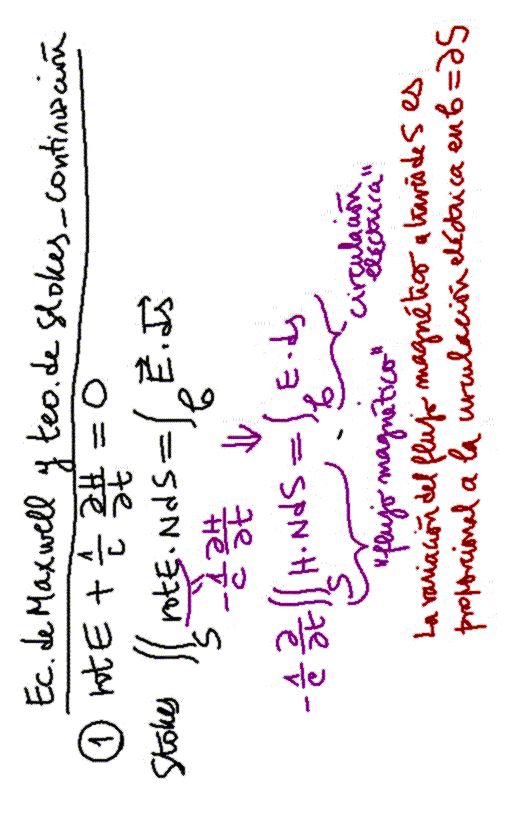 Ec. de Maxwell y teo. de Stokes_continuación
① rot E + 1/c ∂H/∂t = 0
Stokes ∬_S rot E . N dS = ∫_C E⃗ . ds⃗
- 1/c ∂H/∂t
⇓
- 1/c ∂/∂t ∬_S H . N dS = ∫_C E . ds
"flujo magnético"
circulación
eléctrica"
La variación del flujo magnético a través de S es
proporcional a la circulación eléctrica en C = ∂S